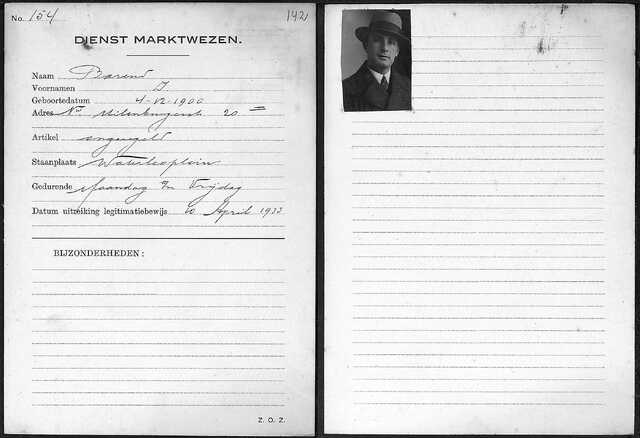 No. 154 142
DIENST MARKTWEZEN.
Naam Barend
Voornamen I
Geboortedatum 4-12-1900
Adres Nw. Uilenburgerstr 20
Artikel ongeregeld
Staanplaats Waterlooplein
Gedurende Maandag t/m Vrijdag
Datum uitreiking legitimatiebewijs 10 April 1933
BIJZONDERHEDEN:
Z. O. Z.